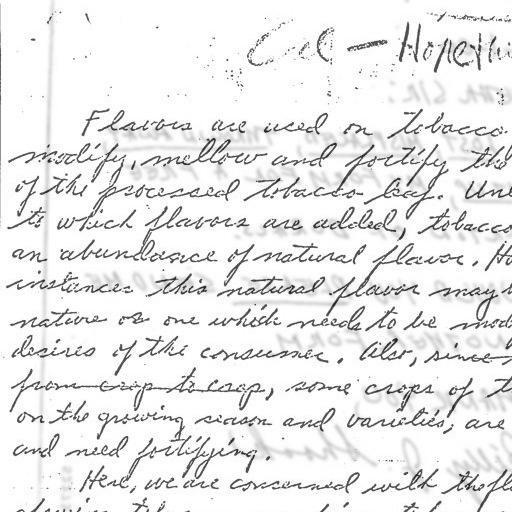 Cal — Hope this
Flavors are used on tobacco
modify, mellow and fortify the
of the processed tobacco leaf. Un
to which flavors are added, tobacco
an abundance of natural flavor. Ho
instances this natural flavor may
nature or one which needs to be mod
desires of the consumer. Also, since
from crop to crop, some crops of t
on the growing season and varieties, are
and need fortifying.
Here, we are concerned with the fl